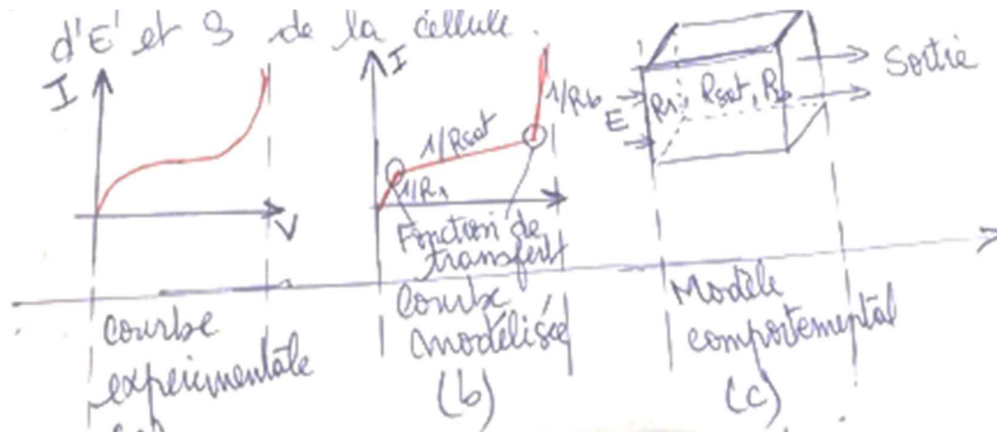 d'E et S de la cellule.
I
V
courbe
expérimentale
I
1/R1
1/Rsat
1/Rb
Fonction de
transfert
Courbe
modélisée
(b)
E
R1, Rsat, Rb
Sortie
Modèle
comportemental
(c)